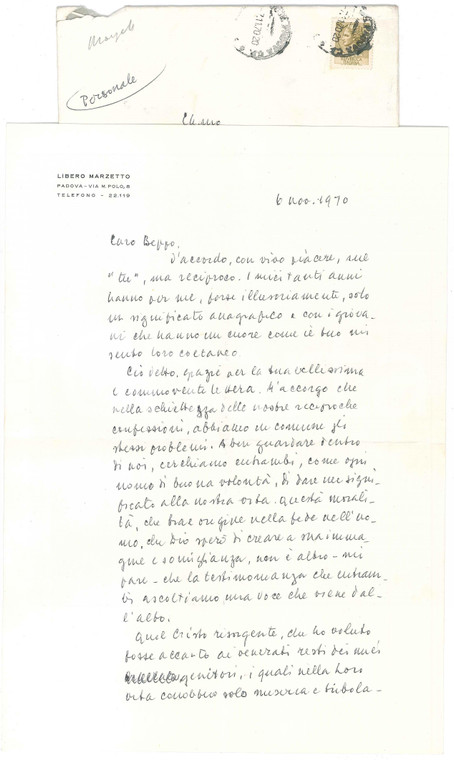 Personale
Ch.mo
LIBERO MARZETTO
PADOVA - VIA M. POLO, 8
TELEFONO - 22.119
6 nov. 1970
Caro Beppo,
d'accordo, con vivo piacere, sul
"tu", ma reciproco. I miei tanti anni
hanno per me, forse illusoriamente, solo
un significato anagrafico e con i giova-
ni che hanno un cuore come il tuo mi
sento loro coetaneo.
Ciò detto, grazie per la tua bellissima
e commovente lettera. M'accorgo che
nella schiettezza delle nostre reciproche
confessioni, abbiamo in comune gli
stessi problemi. A ben guardare dentro
di noi, cerchiamo entrambi, come ogni
uomo di buona volontà, di dare un signi-
ficato alla nostra vita. Questa morali-
tà, che trae origine nella fede nell'uo-
mo, che Dio sperò di creare a sua imma-
gine e somiglianza, non è altro - mi
pare - che la testimonianza che entram-
bi ascoltiamo una voce che viene dal-
l'alto.
Quel Cristo risorgente, che ho voluto
fosse accanto ai venerati resti dei miei
genitori, i quali nella loro
vita conobbero solo miseria e tribola-